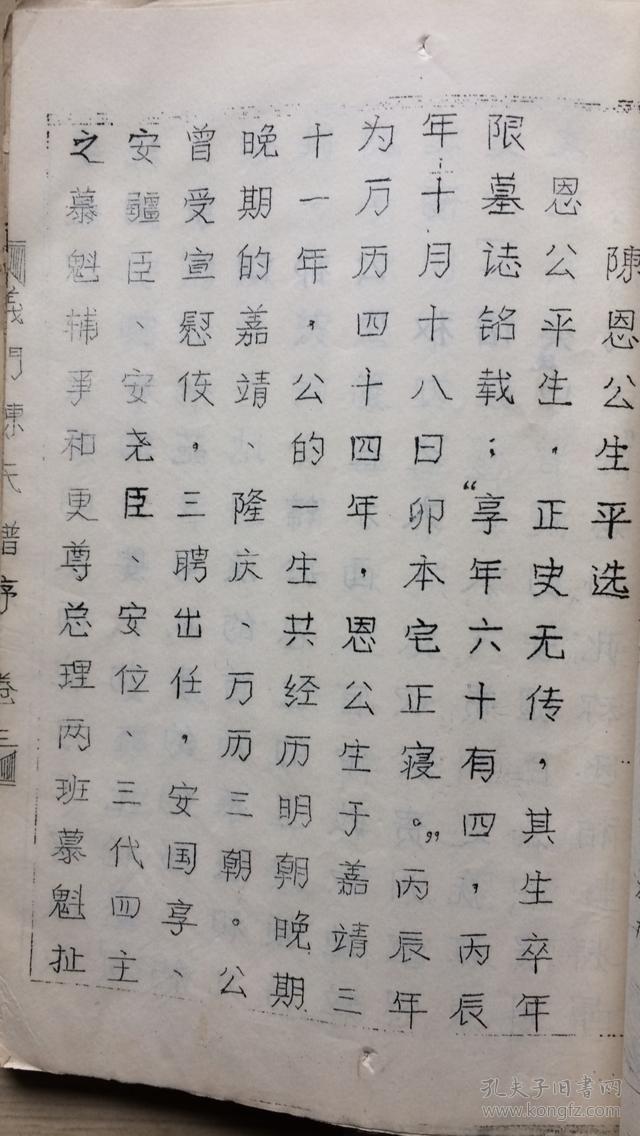 陳恩公生平选
恩公平生，正史无传，其生卒年
限墓誌铭载：“享年六十有四，丙辰
年十月十八日卯本宅正寝。”丙辰年
为万历四十四年，恩公生于嘉靖三
十一年，公的一生共经历明朝晚期
晚期的嘉靖、隆庆、万历三朝。公
曾受宣慰使，三聘出任，安国享、
安疆臣、安尧臣、安位、三代四主
之慕魁辅爭和更尊总理两班慕魁扯
義门陳氏谱序 卷三
孔夫子旧书网
www.kongfz.com